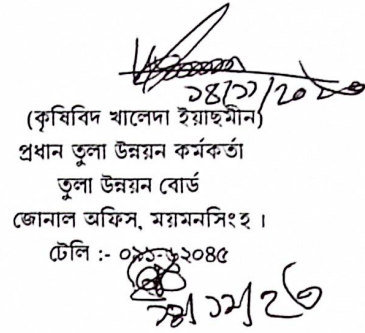 (কৃষিবিদ খালেদা ইয়াছমীন)
প্রধান তুলা উন্নয়ন কর্মকর্তা
তুলা উন্নয়ন বোর্ড
জোনাল অফিস, ময়মনসিংহ ।
টেলি :- ০৯১-৬২০৪৫